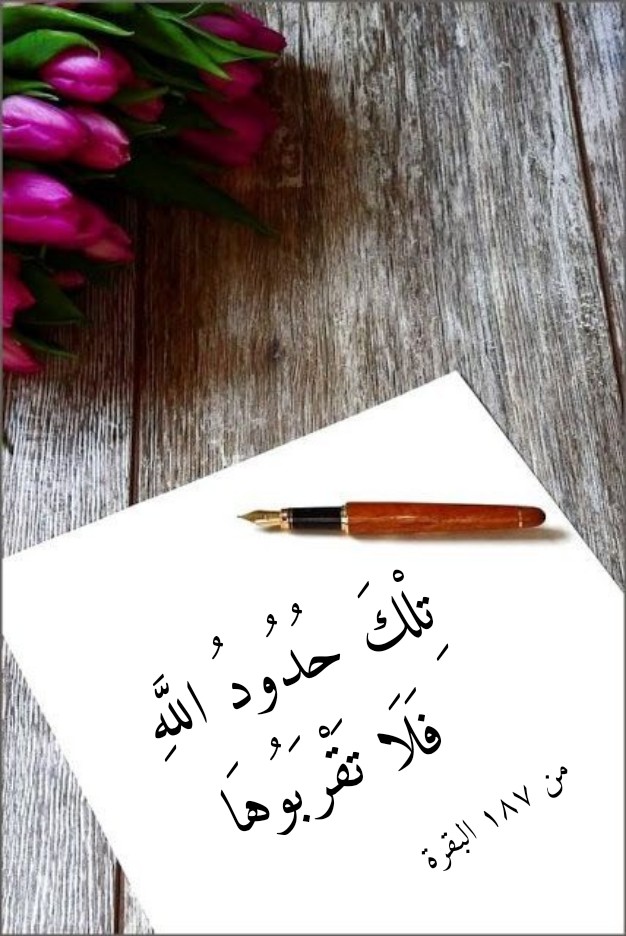 تِلْكَ حُدُودُ اللَّهِ
فَلَا تَقْرَبُوهَا
من ١٨٧ البقرة